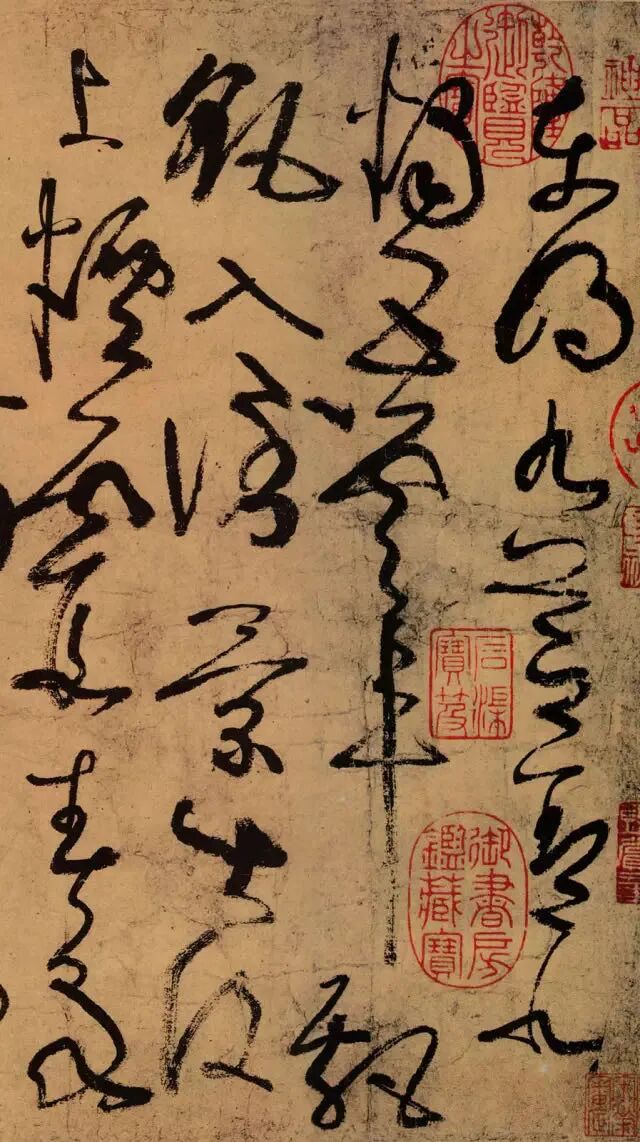 神品
東明九芝蓋北
燭五雲車飄
飖入倒景出沒
上煙霞春泉
乾隆御覽之寶
石渠寶笈
御書房鑑藏寶